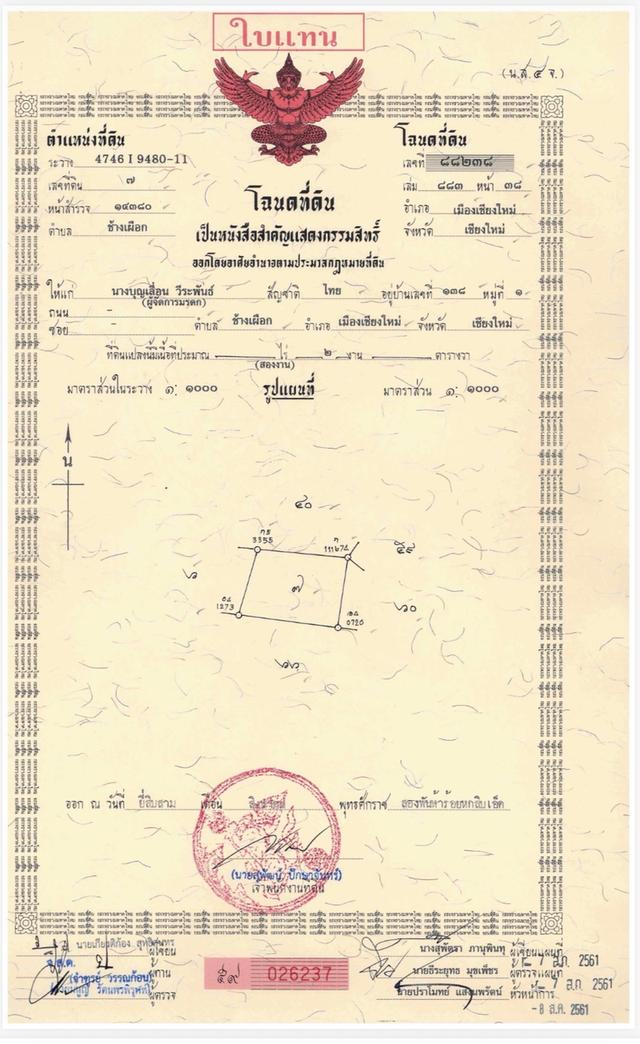 ใบแทน
(น.ส. ๔ จ.)
ตำแหน่งที่ดิน
ระวาง 4746 I 9480-11
เลขที่ดิน ๗
หน้าสำรวจ ๑๙๓๘๐
ตำบล ช้างเผือก
โฉนดที่ดิน
เลขที่ ๘๘๒๓๘
เล่ม ๘๘๓ หน้า ๓๘
อำเภอ เมืองเชียงใหม่
จังหวัด เชียงใหม่
โฉนดที่ดิน
เป็นหนังสือสำคัญแสดงกรรมสิทธิ์
ออกโดยอาศัยอำนาจตามประมวลกฎหมายที่ดิน
ให้แก่ นางบุญเสื่อน วีระพันธ์ สัญชาติ ไทย อยู่บ้านเลขที่ ๑๓๘ หมู่ที่ ๑
(ผู้จัดการมรดก)
ถนน -
ซอย - ตำบล ช้างเผือก อำเภอ เมืองเชียงใหม่ จังหวัด เชียงใหม่
ที่ดินแปลงนี้มีเนื้อที่ประมาณ ไร่ ๒ งาน ตารางวา
(สองงาน)
มาตราส่วนในระวาง ๑: ๑๐๐๐ รูปแผนที่ มาตราส่วน ๑: ๑๐๐๐
น
๔๐
3355
1116
๕๙
๖
๗
1273
0720
๖๐
๖๖
ออก ณ วันที่ ยี่สิบสาม เดือน สิงหาคม พุทธศักราช สองพันห้าร้อยหกสิบเอ็ด
(นายสุพัฒน์ ปักษาจันทร์)
เจ้าพนักงานที่ดิน
ผู้เขียน
จ.ส.ต.
ผู้ทาน
ผู้ตรวจ
๕๙ 026237
นางสุพัตรา ภานุพินทุ ผู้เขียนแผนที่
- 7 ส.ค. 2561
นายธีระยุทธ มุขเพชร ผู้ตรวจแผนที่
- 7 ส.ค. 2561
นายปราโมทย์ แสงมพรัตน์ หัวหน้าการ
- 8 ส.ค. 2561